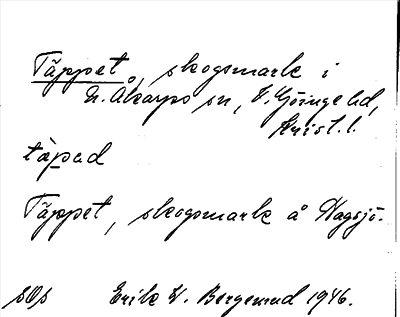 Täppet, skogsmark i
N. Åkarps sn, V. Göinge hd,
Krist. l.
tàpad
Täppet, skogsmark å Hagsjö.
sOs Erik W. Bergemud 1946.